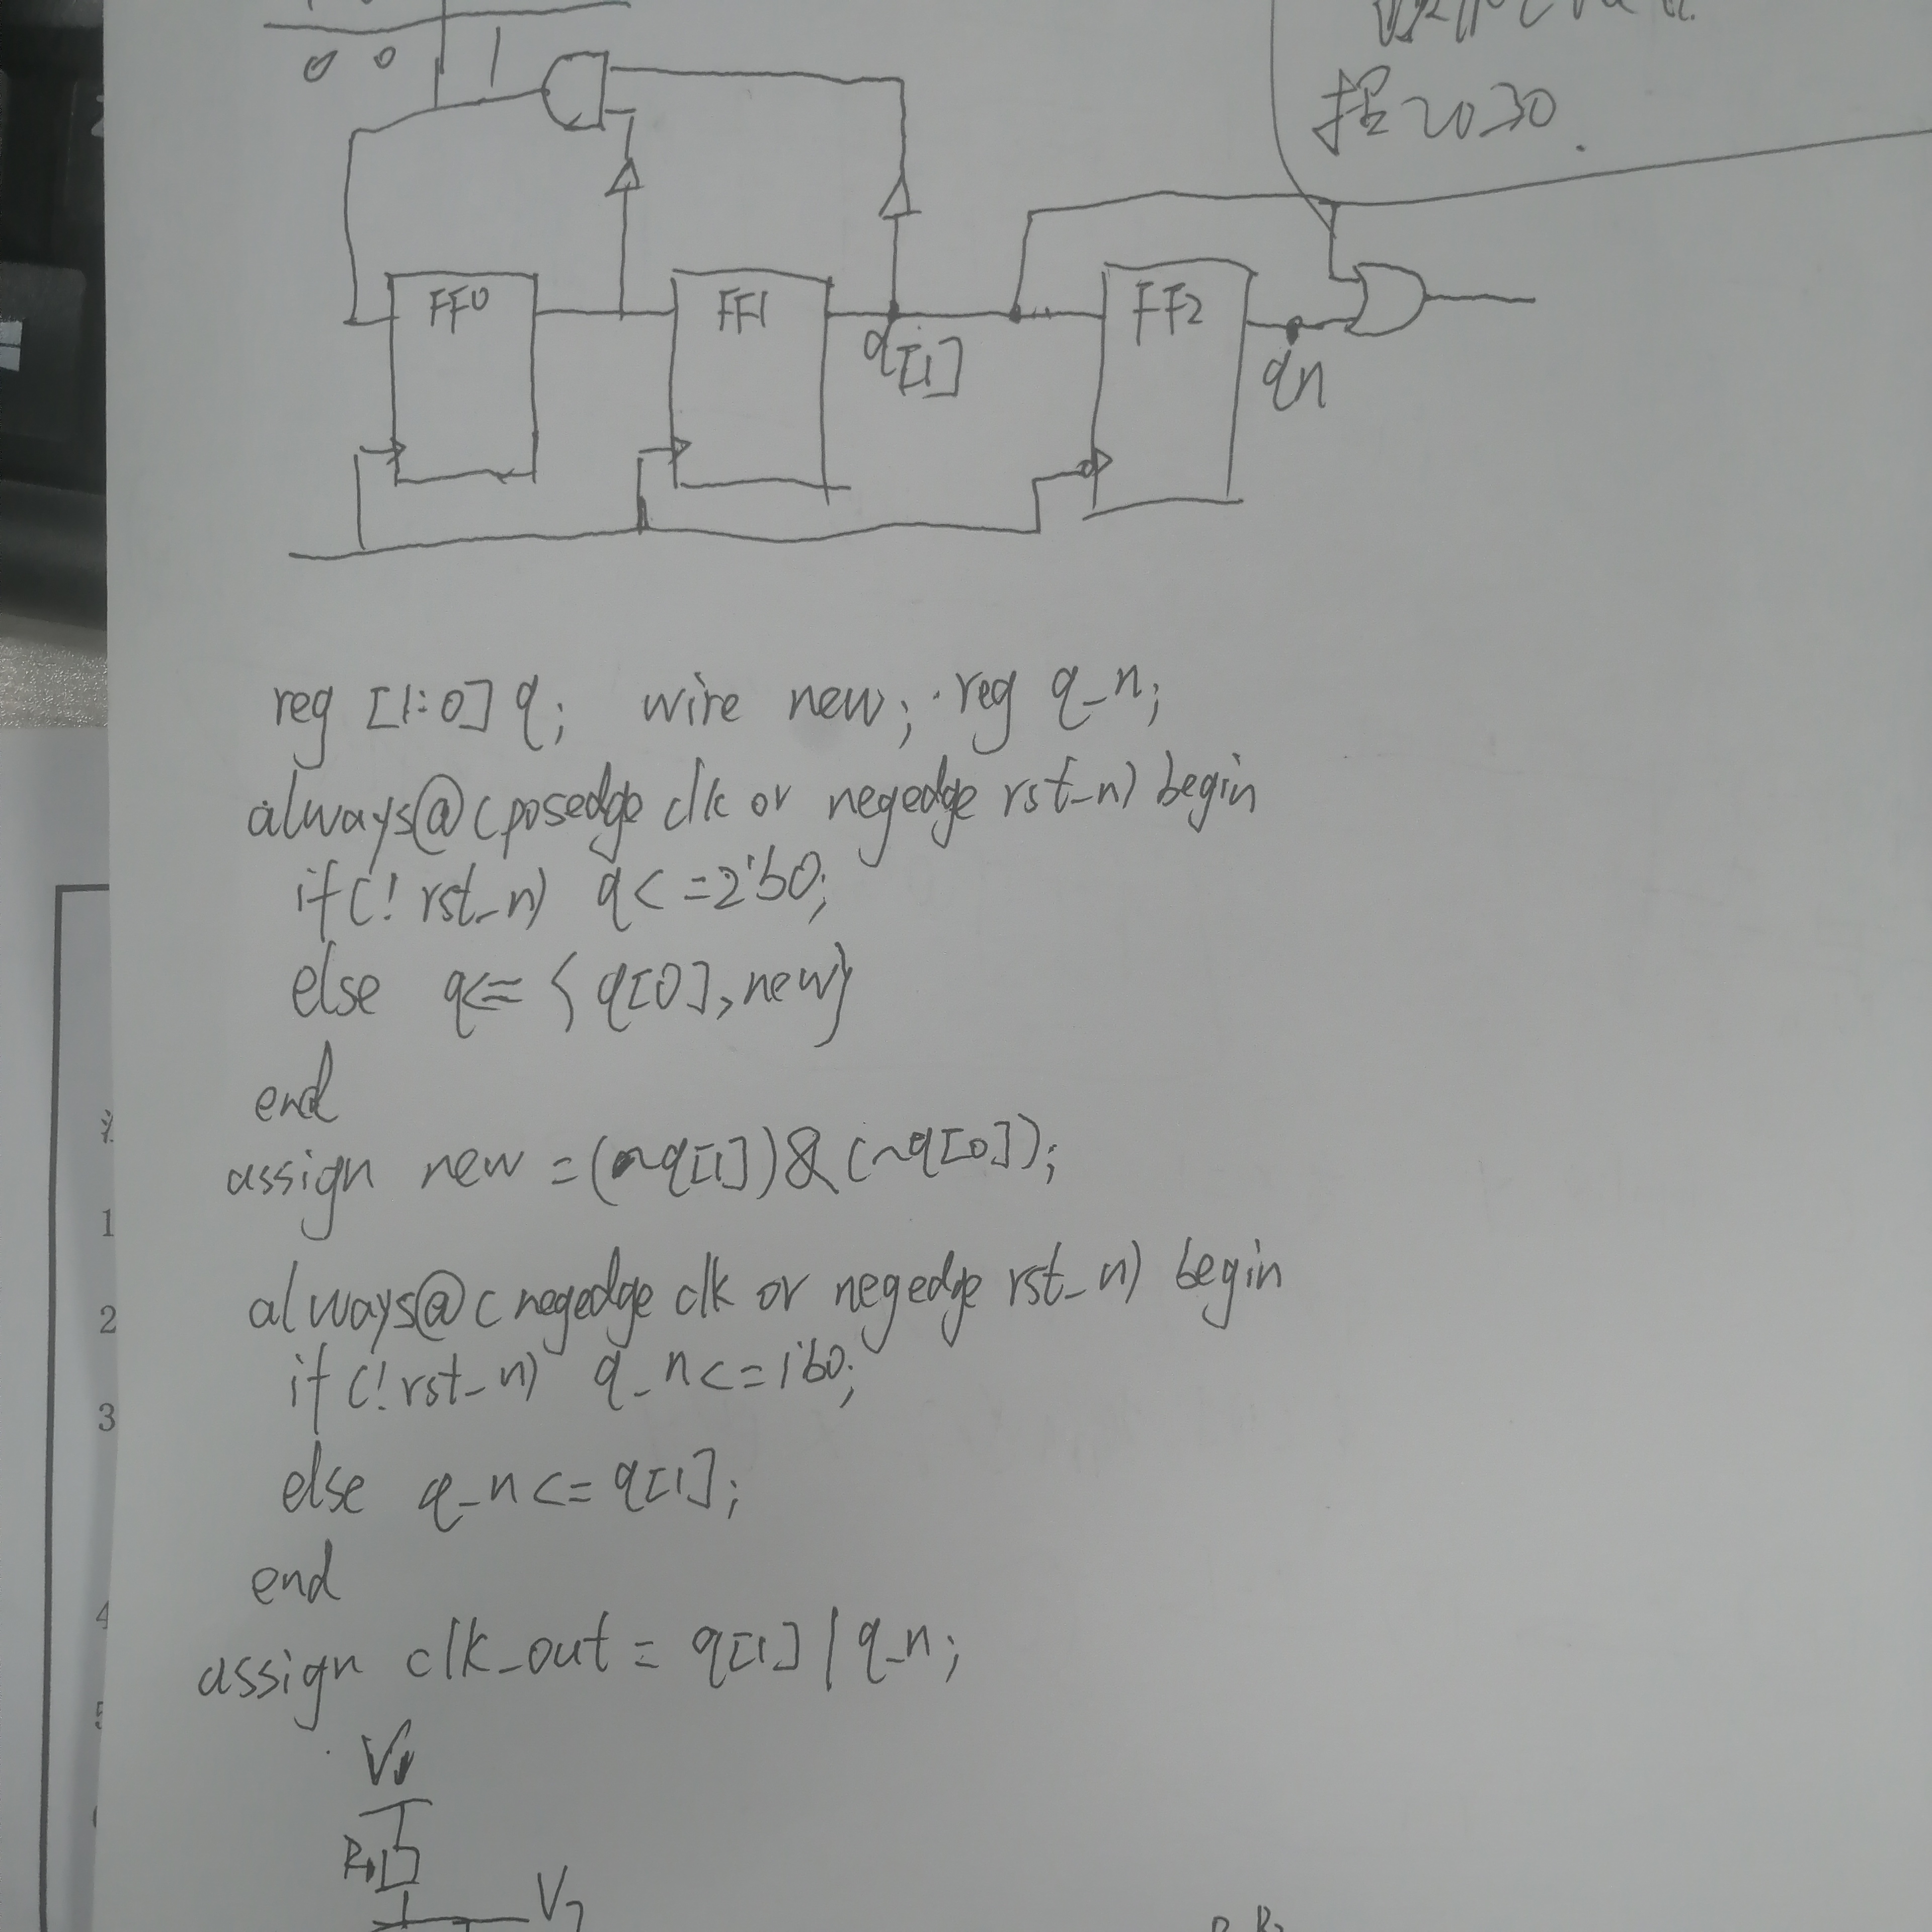 0 0 1
握2030.
FF0 FF1 FF2
q[1] qn
reg [1:0] q; wire new; reg q_n;
always@(posedge clk or negedge rst_n) begin
if(!rst_n) q<=2'b0;
else q<= {q[0],new}
end
assign new =(~q[1])&(~q[0]);
always@(negedge clk or negedge rst_n) begin
if(!rst_n) q_n<=1'b0;
else q_n<=q[1];
end
assign clk_out = q[1] | q_n;
1
2
3
4
5
R1